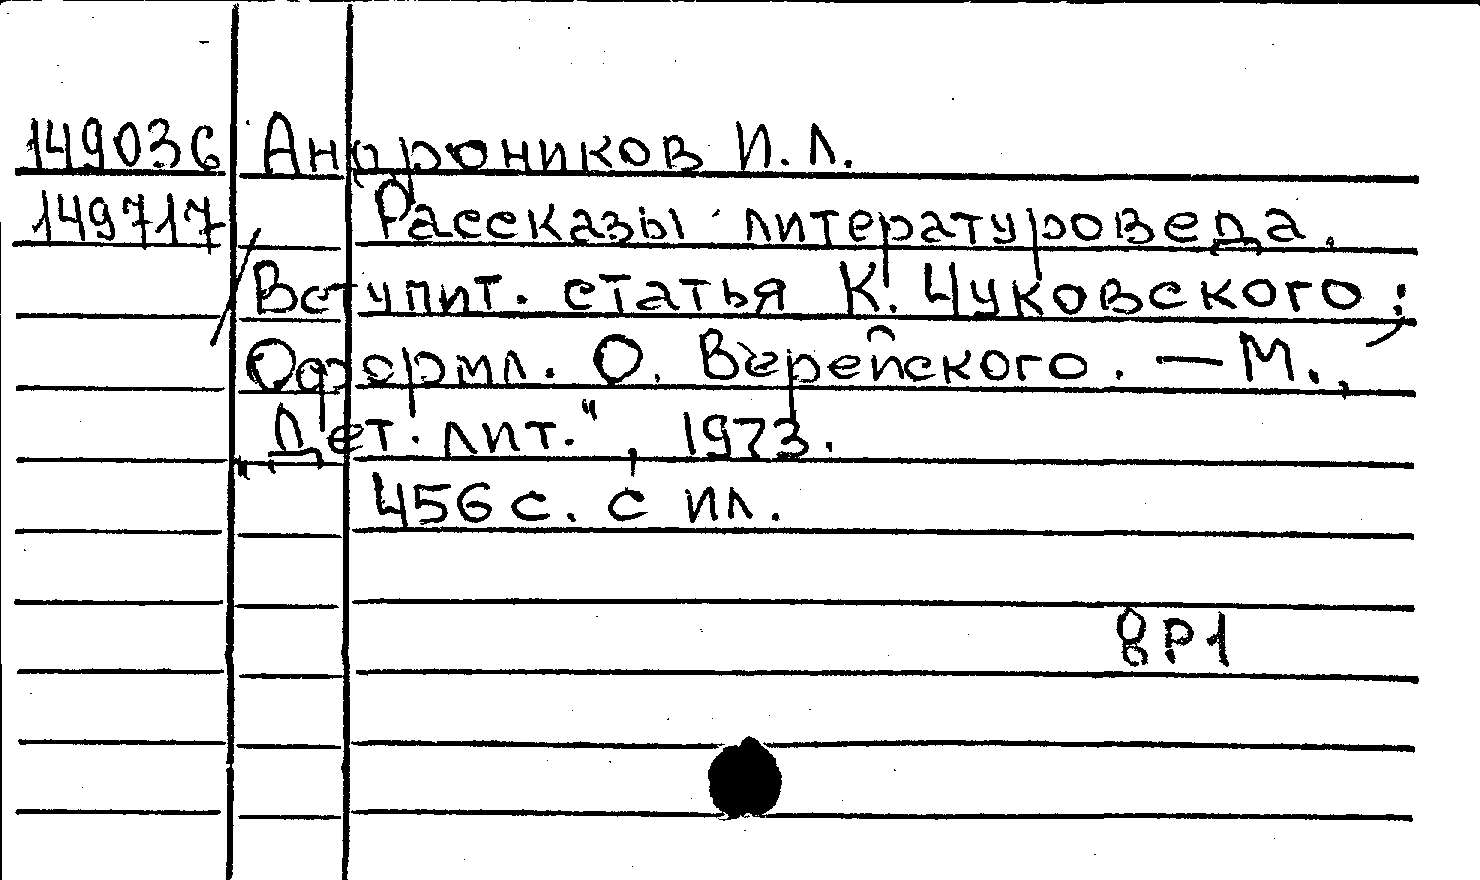 149036 Андроников И. Л.
149717 Рассказы литературоведа.
Вступит. статья К. Чуковского;
Оформл. О. Верейского. — М.,
„Дет. лит.", 1973.
456 с. с ил.
8Р1